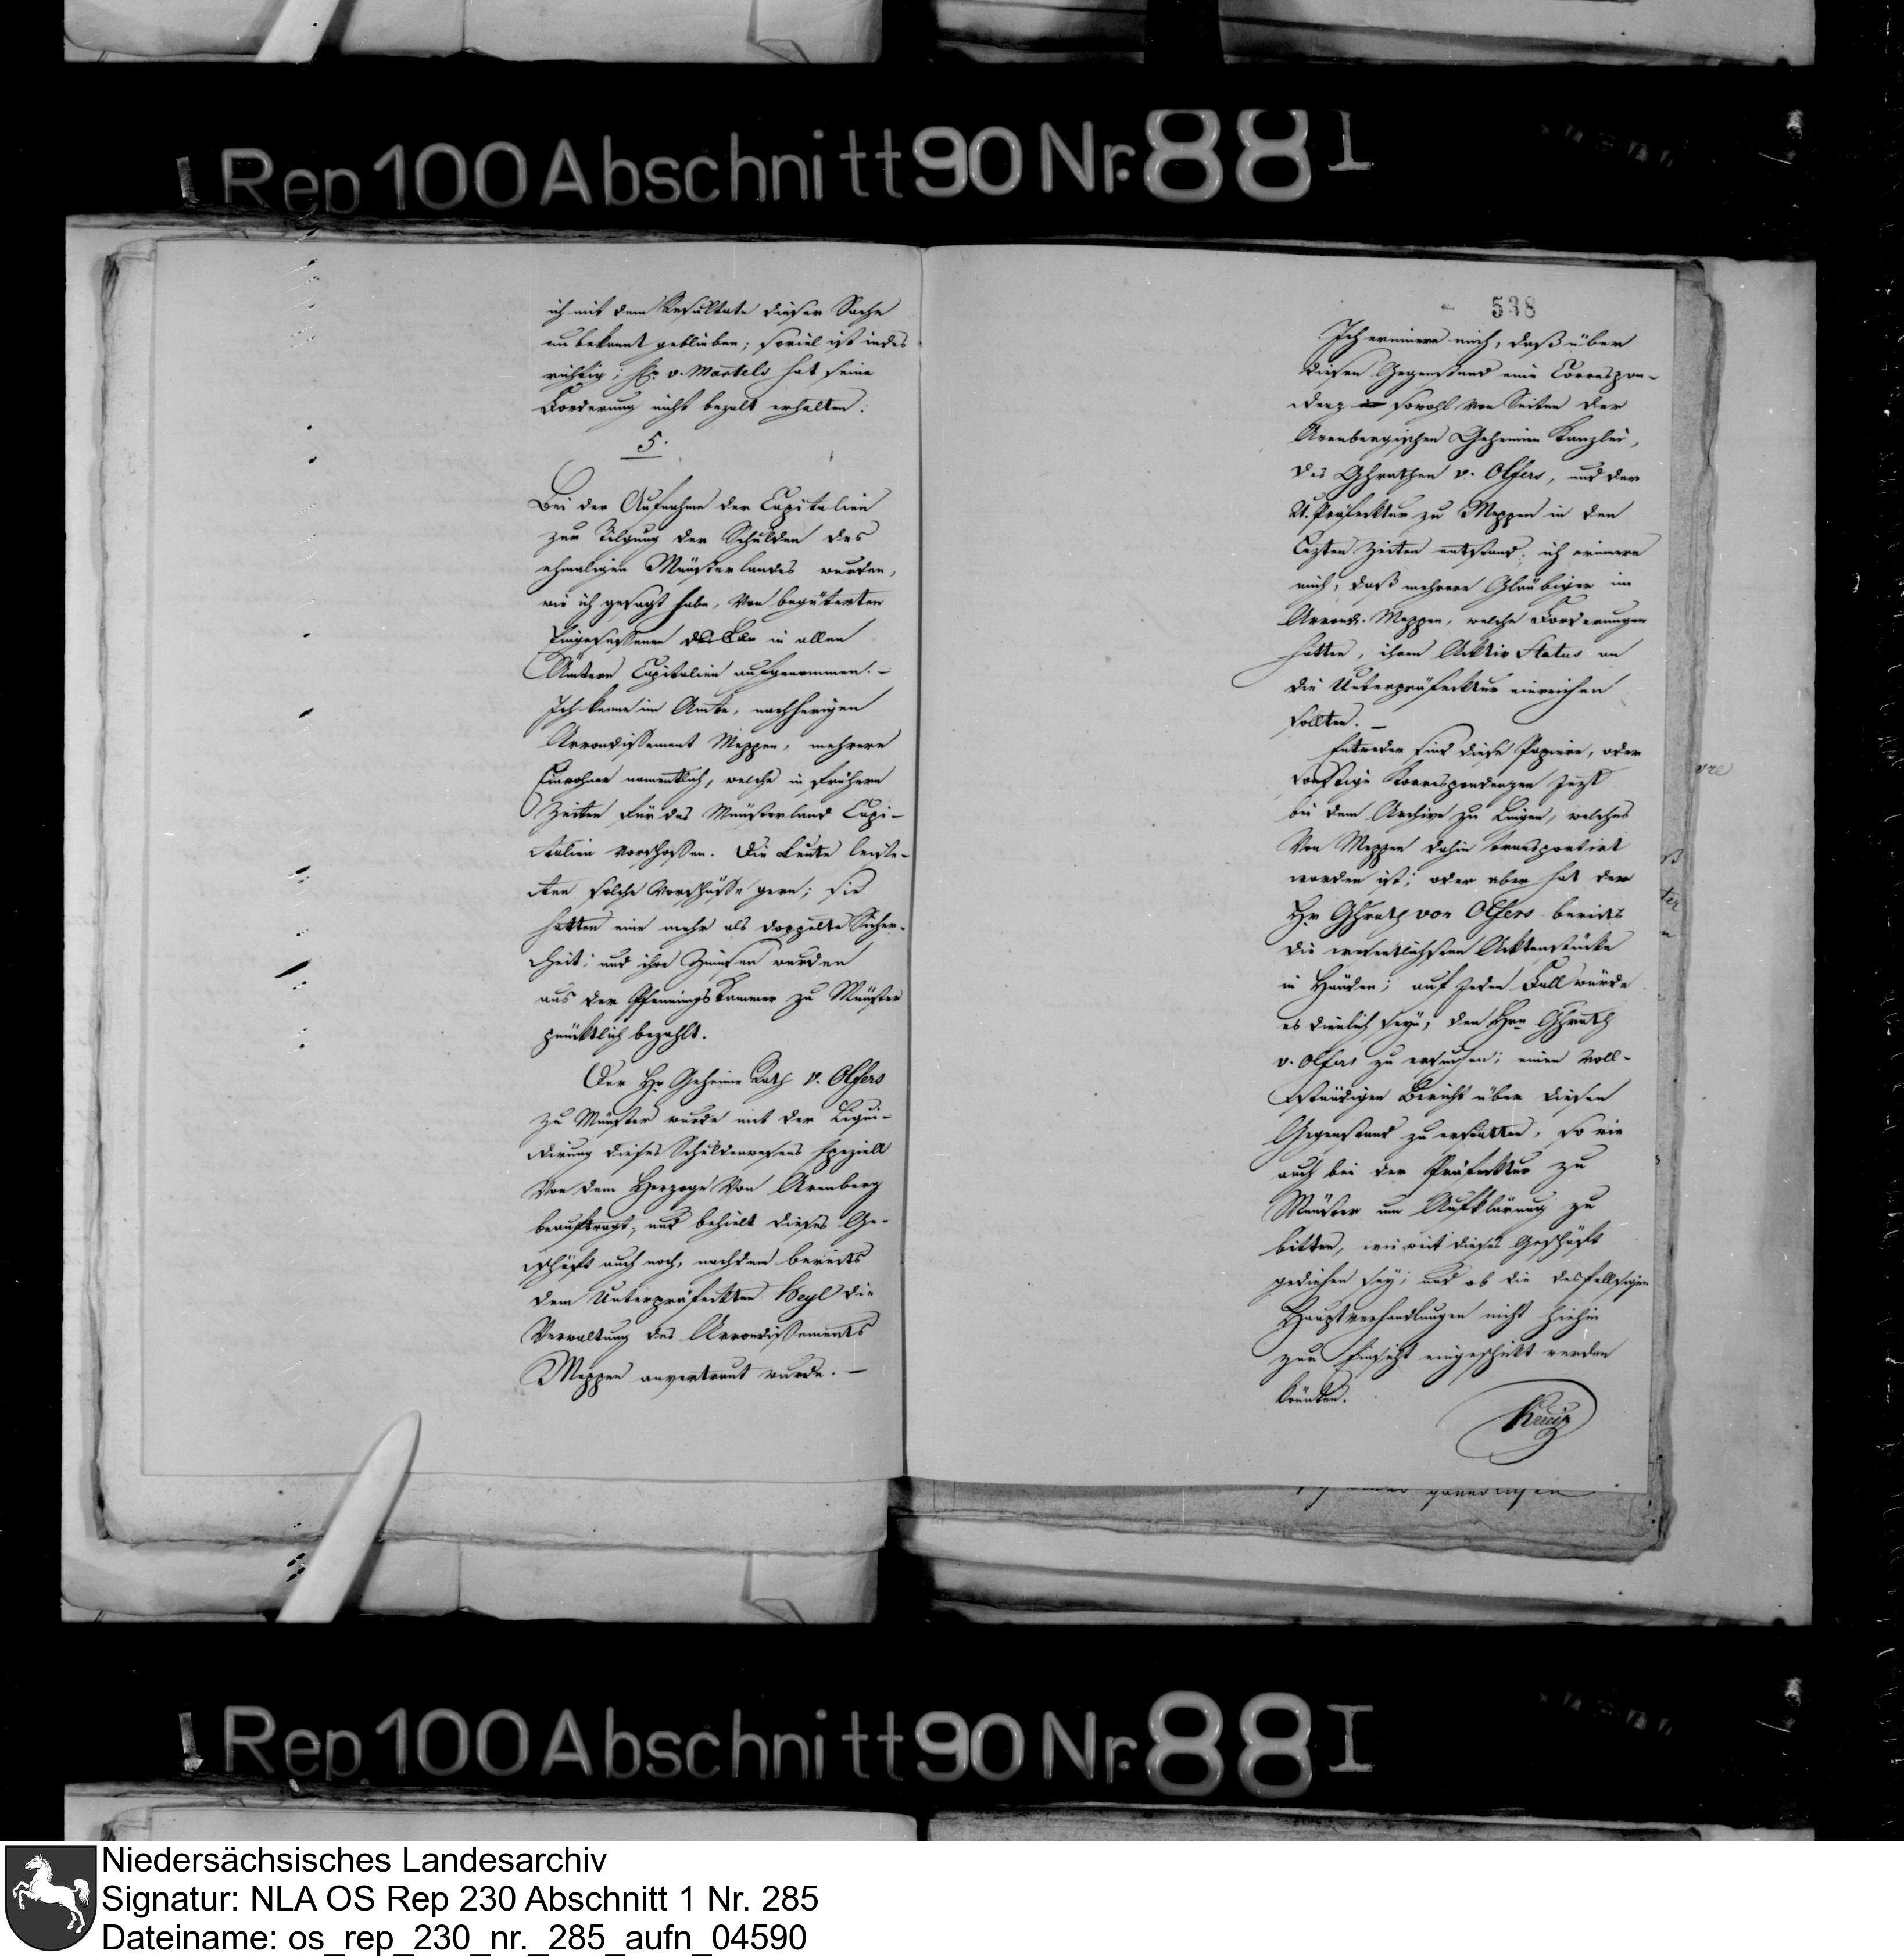 Rep 100 Abschnitt 90 Nr. 88 I
ich mit dem Resultate dieser Sache
unbekannt geblieben; soviel ist indes
richtig; Hr. v. Martels hat seine
Forderung nicht bezalt erhalten.
5.
Bei der Aufnahme der Capitalien
zur Tilgung der Schulden des
ehmaligen Münsterlandes wurden,
wie ich gesagt habe, von begüterten
Eingesessenen in allen
Ämtern Capitalien aufgenommen. –
Ich kenne im Amte, nachherigen
Arrondissement Meppen, mehrere
Einwohner namentlich, welche in frühern
Zeiten für das Münsterland Capi-
talien vorschossen. Die Leute leiste-
ten solche Vorschüsse gern; sie
hatten eine mehr als doppelte Sicher-
heit; und ihre Zinsen wurden
aus der Pfennings Kammer zu Münster
pünktlich bezahlt.
Der Hr Geheime Rath v. Olfers
zu Münster wurde mit der Liqui-
dirung dieses Schuldenwesens speziell
von dem Herzoge von Arenberg
beauftragt, und behielt dieses Ge-
schäft auch noch, nachdem bereits
dem Unterpräfeckten Heyl die
Verwaltung des Arrondissements
Meppen anvertraut wurde. –
538
Ich erinnere mich, daß über
diesen Gegenstand eine Correspon-
denz sowohl von Seiten der
Arenbergischen Geheimen Kanzlei,
des Ghrathen v. Olfers, und der
U. Präfecktur zu Meppen in den
lezten Zeiten entstand; ich erinnere
mich, daß mehrere Gläubiger im
Arrond. Meppen, welche Forderungen
hatten, ihren Acktiv Status an
die Unterpräfecktur einreichen
sollten. –
Entweder sind diese Papiere, oder
sonstige Korrespondenzen jezt
bei dem Archive zu Lingen, welches
von Meppen dahin transportirt
worden ist; oder aber hat der
Hr Ghrath von Olfers bereits
die wesentlichsten Acktenstücke
in Händen; auf jeden Fall würde
es dienlich seyn, den Hrn Ghrath
v. Olfers zu ersuchen; einen voll-
ständigen Bericht über diesen
Gegenstand zu erstatten, so wie
auch bei der Präfecktur zu
Münster um Aufklärung zu
bitten, wie weit dieses Geschäft
gediehen sey; und ob die desfallsigen
Hauptverhandlungen nicht hiehin
zur Einsicht eingeschikt werden
könnten.
Rep 100 Abschnitt 90 Nr. 88 I
Niedersächsisches Landesarchiv
Signatur: NLA OS Rep 230 Abschnitt 1 Nr. 285
Dateiname: os_rep_230_nr._285_aufn_04590